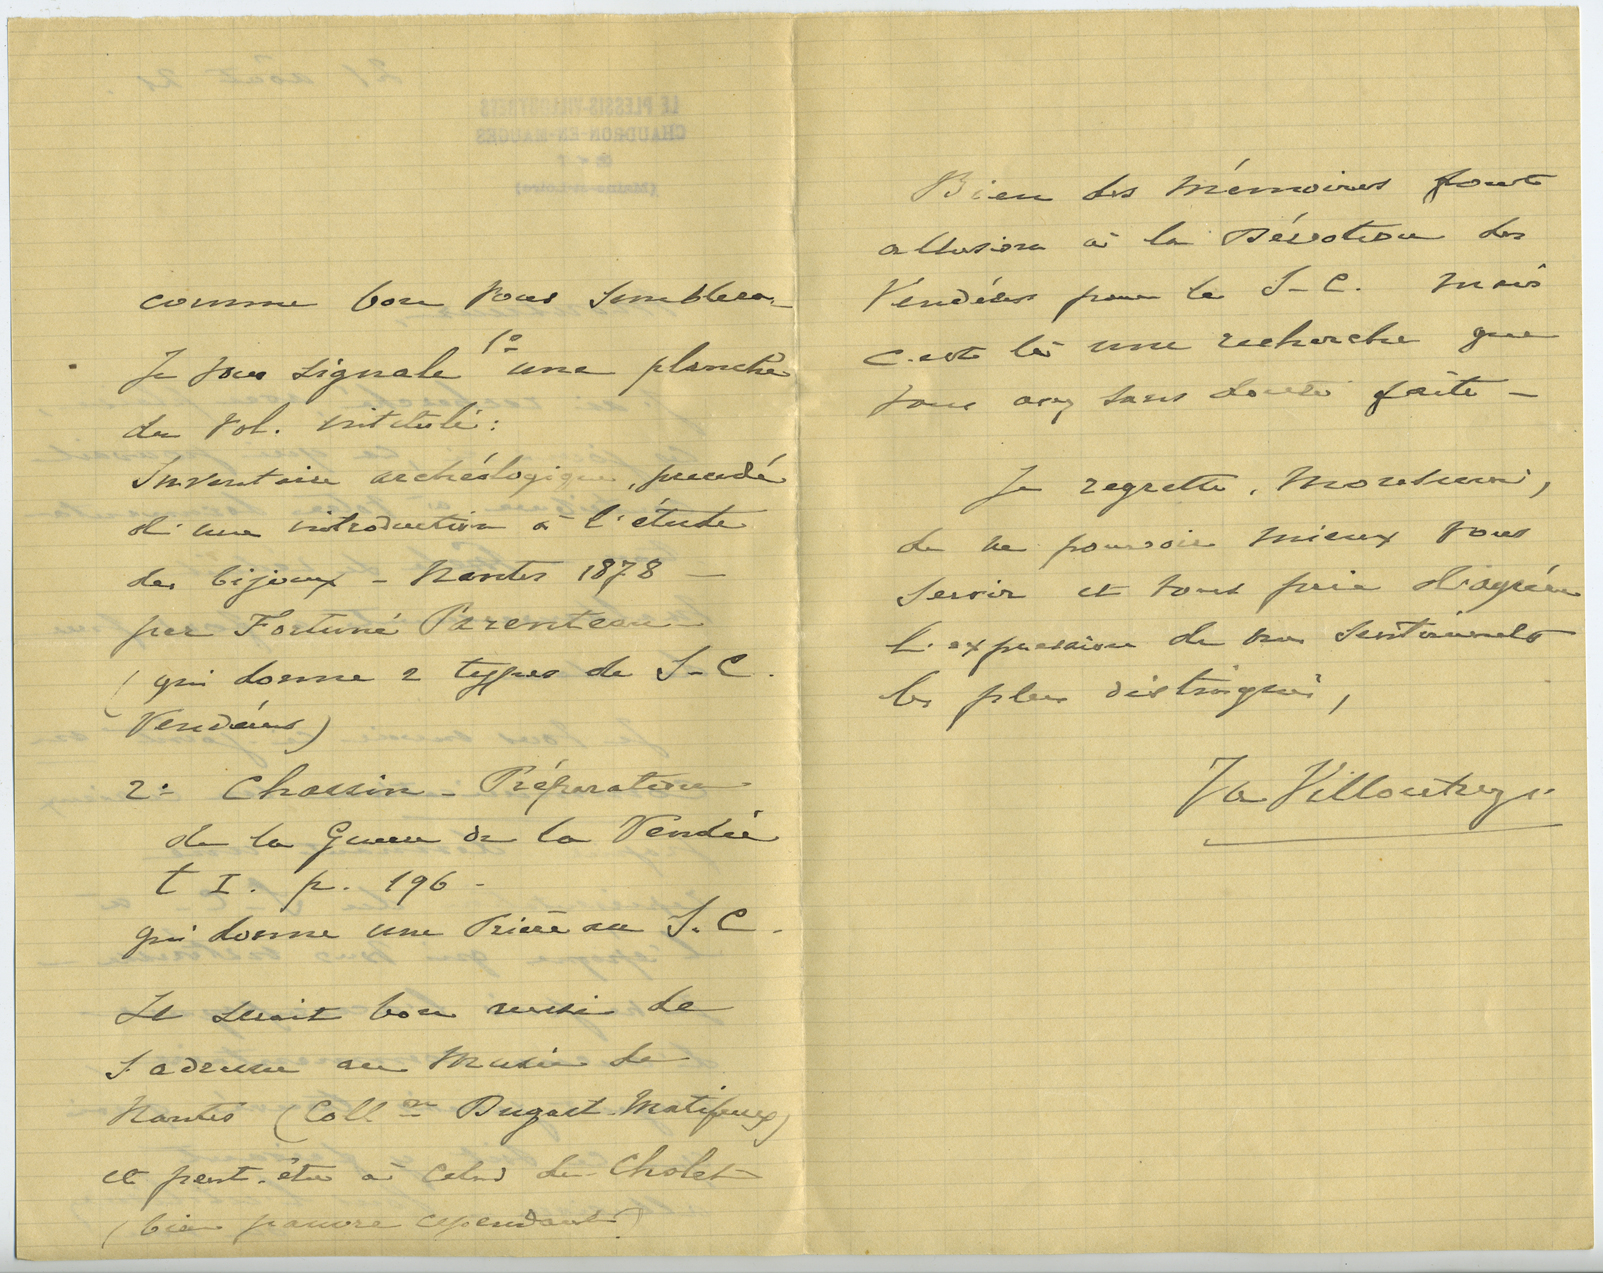 comme bon vous semblera –
Je vous signale 1º une planche
du vol. intitulé :
Inventaire archéologique, précédé
d'une introduction à l'étude
des bijoux – Nantes 1878 –
par Fortuné Parenteau –
(qui donne 2 types de S-C.
Vendéens)
2º Chassin – Préparation
de la Guerre de la Vendée
t I. p. 196 –
qui donne une Prière au S.C.
Il serait bon aussi de
s'adresser au Musée de
Nantes (Coll.on Dugast-Matifeux)
et peut-être à celui de Cholet
(bien pauvre cependant)
Bien des Mémoires font
allusion à la Dévotion des
Vendéens pour le S-C. Mais
c'est là une recherche que
vous avez sans doute faite –
Je regrette, Monsieur,
de ne pouvoir mieux vous
servir et vous prie d'agréer
l'expression de mes sentiments
les plus distingués,
Villoutreys
LE PLESSIS-VILLOUTREYS
CHAUDRON-EN-MAUGES
(Maine-et-Loire)
21 août